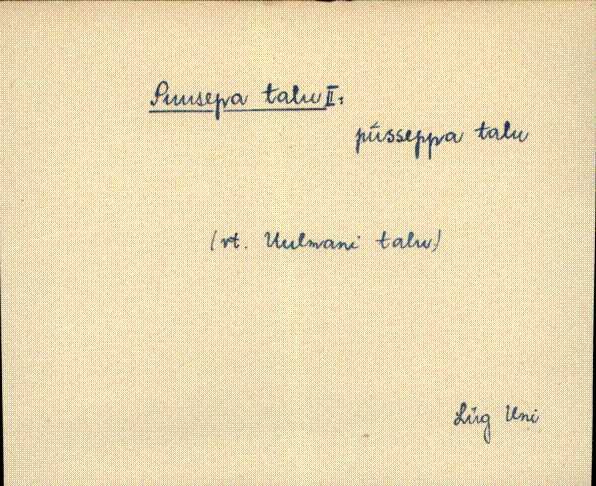 Puusepa talu II:
pūsseppa talu
(vt. Uulmani talu)
Lüg Uni